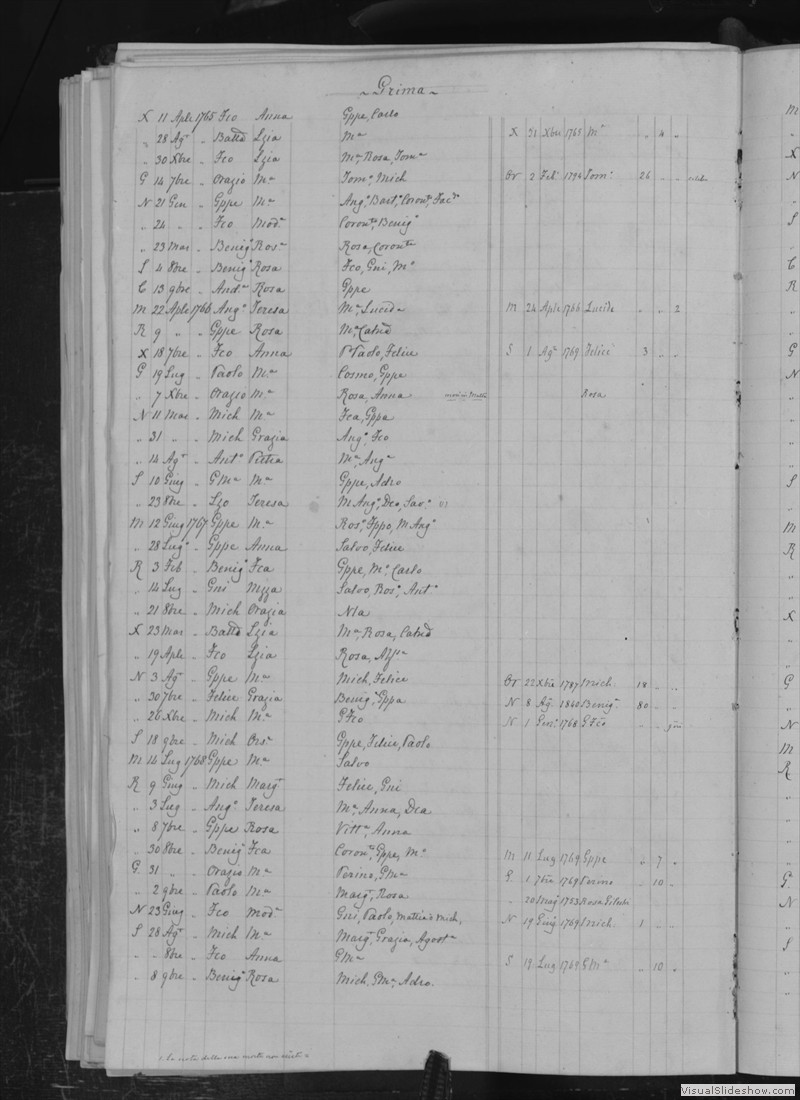 ~ Grima ~
X 11 Aple 1765 Fco Anna Gppe, Carlo
" 28 Agt " Battā Lzia Ma X 31 Xbre 1765 Ma " 4 "
" 30 Xbre " Fco Lzia Ma, Rosa, Toma
G 14 7bre " Orazio Ma Toma, Mich Gr 2 Feb 1794 Toma 26 " "
N 21 Gen " Gppe Ma Anga, Barta, Corona,
" 24 " " Fco Moda Corona, Benig
" 23 Mar " Benig Rosa Rosa, Corona
S 4 8bre " Benig Rosa Fco, Gni, Ma
C 13 9bre " Anda Rosa Gppe
M 22 Aple 1766 Ango Teresa Ma, Lucida M 24 Aple 1766 Lucida " " 2
R 9 " " Gppe Rosa Ma, Catnā
X 18 7bre " Fco Anna Paolo, Felice S 1 Agt 1769 Felice 3 " "
G 19 Lug " Paolo Ma Cosmo, Gppe
" 7 Xbre " Orazio Ma Rosa, Anna Rosa
N 11 Mar " Mich Ma Fca, Gppa
" 31 " " Mich Grazia Ango, Fco
" 14 Agt " Anto Pietra Ma, Anga
S 10 Giug " GMa Ma Gppe, Adro
" 23 8bre " Lzo Teresa M Anga, Dea, Sava
M 12 Giug 1767 Gppe Ma Rosa, Fppo, M Anga
" 28 Lug " Gppe Anna Salvo, Felice
R 3 Feb " Benig Fca Gppe, Ma, Carlo
" 14 Lug " Gni Nzza Salvo, Rosa, Anta
" 21 8bre " Mich Orazia Nla
X 23 Mar " Battā Lzia Ma, Rosa, Catnā
" 19 Aple " Fco Lzia Rosa,
N 3 Agt " Gppe Ma Mich, Felice Gr 22 Xbre 1787 Mich. 18 " "
" 30 7bre " Felice Grazia Benig, Gppa N 8 Agt 1840 Benig. 80 " "
" 26 Xbre " Mich Ma GFco N 1 Gen 1768 GFco " "
S 18 9bre " Mich Orsa Gppe, Felice, Paolo
M 14 Lug 1768 Gppe Ma Salvo
R 9 Giug " Mich Margt Felice, Gni
" 3 Lug " Ango Teresa Ma, Anna, Dea
" 8 7bre " Gppe Rosa Vitta, Anna
" 30 8bre " Benig Fca Corona, Gppe, Ma M 11 Lug 1769 Gppe " 7 "
G 31 " " Orazio Ma Verino, GMa G 1 7bre 1769 Verino " 10 "
" 2 9bre " Paolo Ma Margt, Rosa " 20 Mag 1753 Rosa
N 23 Giug " Fco Moda Gni, Paolo, Mattia's Mich, N 19 Giug 1769 Mich. 1 " "
S 28 Agt " Mich Ma Margt, Grazia, Agosta
" " 8bre " Fco Anna GMa S 19 Lug 1769 GMa " 10 "
" 8 9bre " Benig Rosa Mich, GMa, Adro.
1. La nota della sua morte non esiste
VisualSlideshow.com